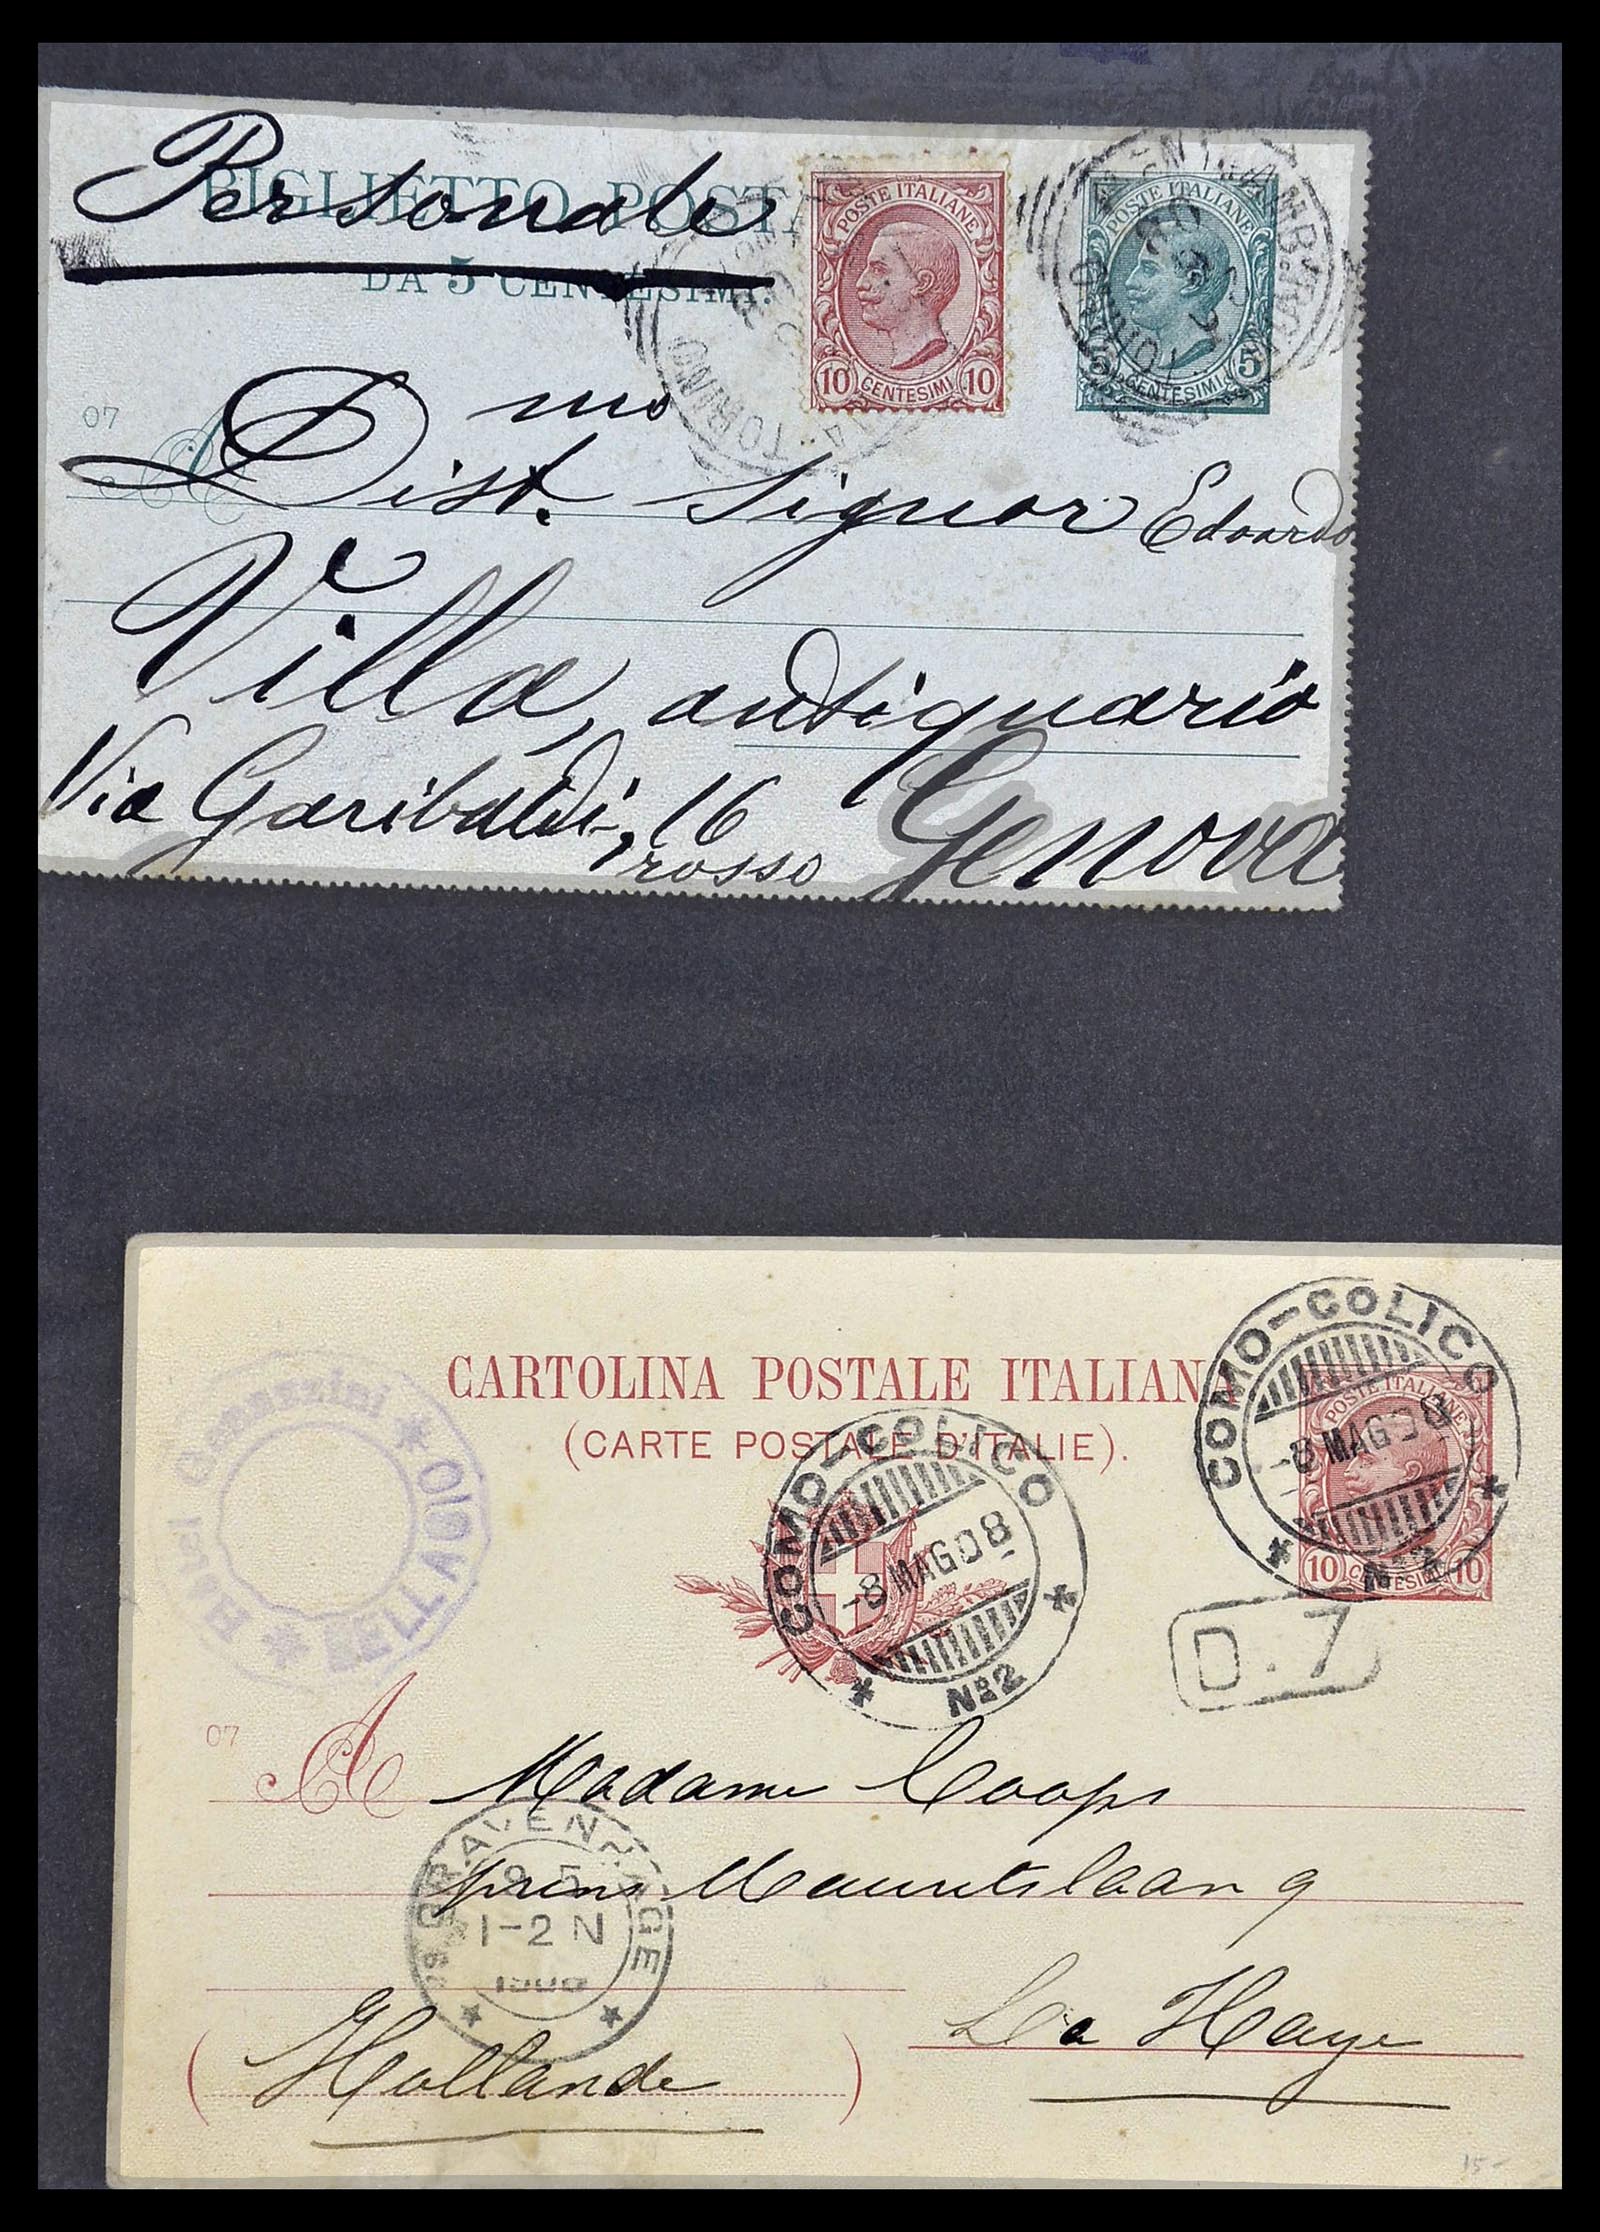 Personale
BIGLIETTO POSTA
DA 5 CENTESIMI.
POSTE ITALIANE
10 CENTESIMI 10
POSTE ITALIANE
5 CENTESIMI 5
TORINO
TORINO
07
A
Dist.mo Signor Edoardo
Villa, antiquario
Via Garibaldi, 16
rosso
Genova
CARTOLINA POSTALE ITALIANA
(CARTE POSTALE D'ITALIE).
POSTE ITALIANE
10 CENTESIMI 10
COMO-COLICO
-8 MAG 08
* Nº 2 *
COMO-COLICO
-8 MAG 08
* Nº 2 *
Hotel * BELLAGIO *
D.7
07
A Madame Coops
prins Mauritslaan 9
La Haye
(Hollande)
'S GRAVENHAGE
9 5
1-2 N
1908
15-